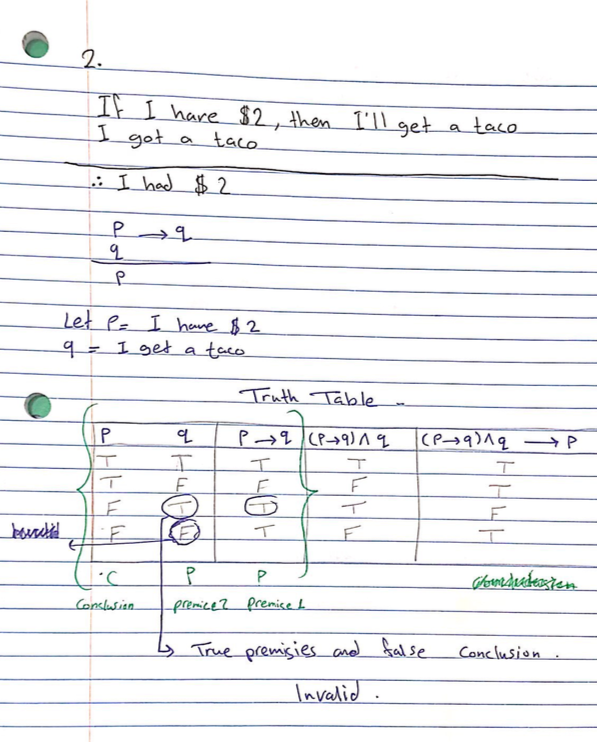 2.
If I have $2, then I'll get a taco
I got a taco
∴ I had $2
P → q
q
P
Let P = I have $2
q = I get a taco
Truth Table
P q P → q (P→q)∧q (P→q)∧q → P
T T T T T
T F F F T
F T T T F
F F T F T
∴C P P
Conclusion premice2 premice1
True premisies and false conclusion.
Invalid.